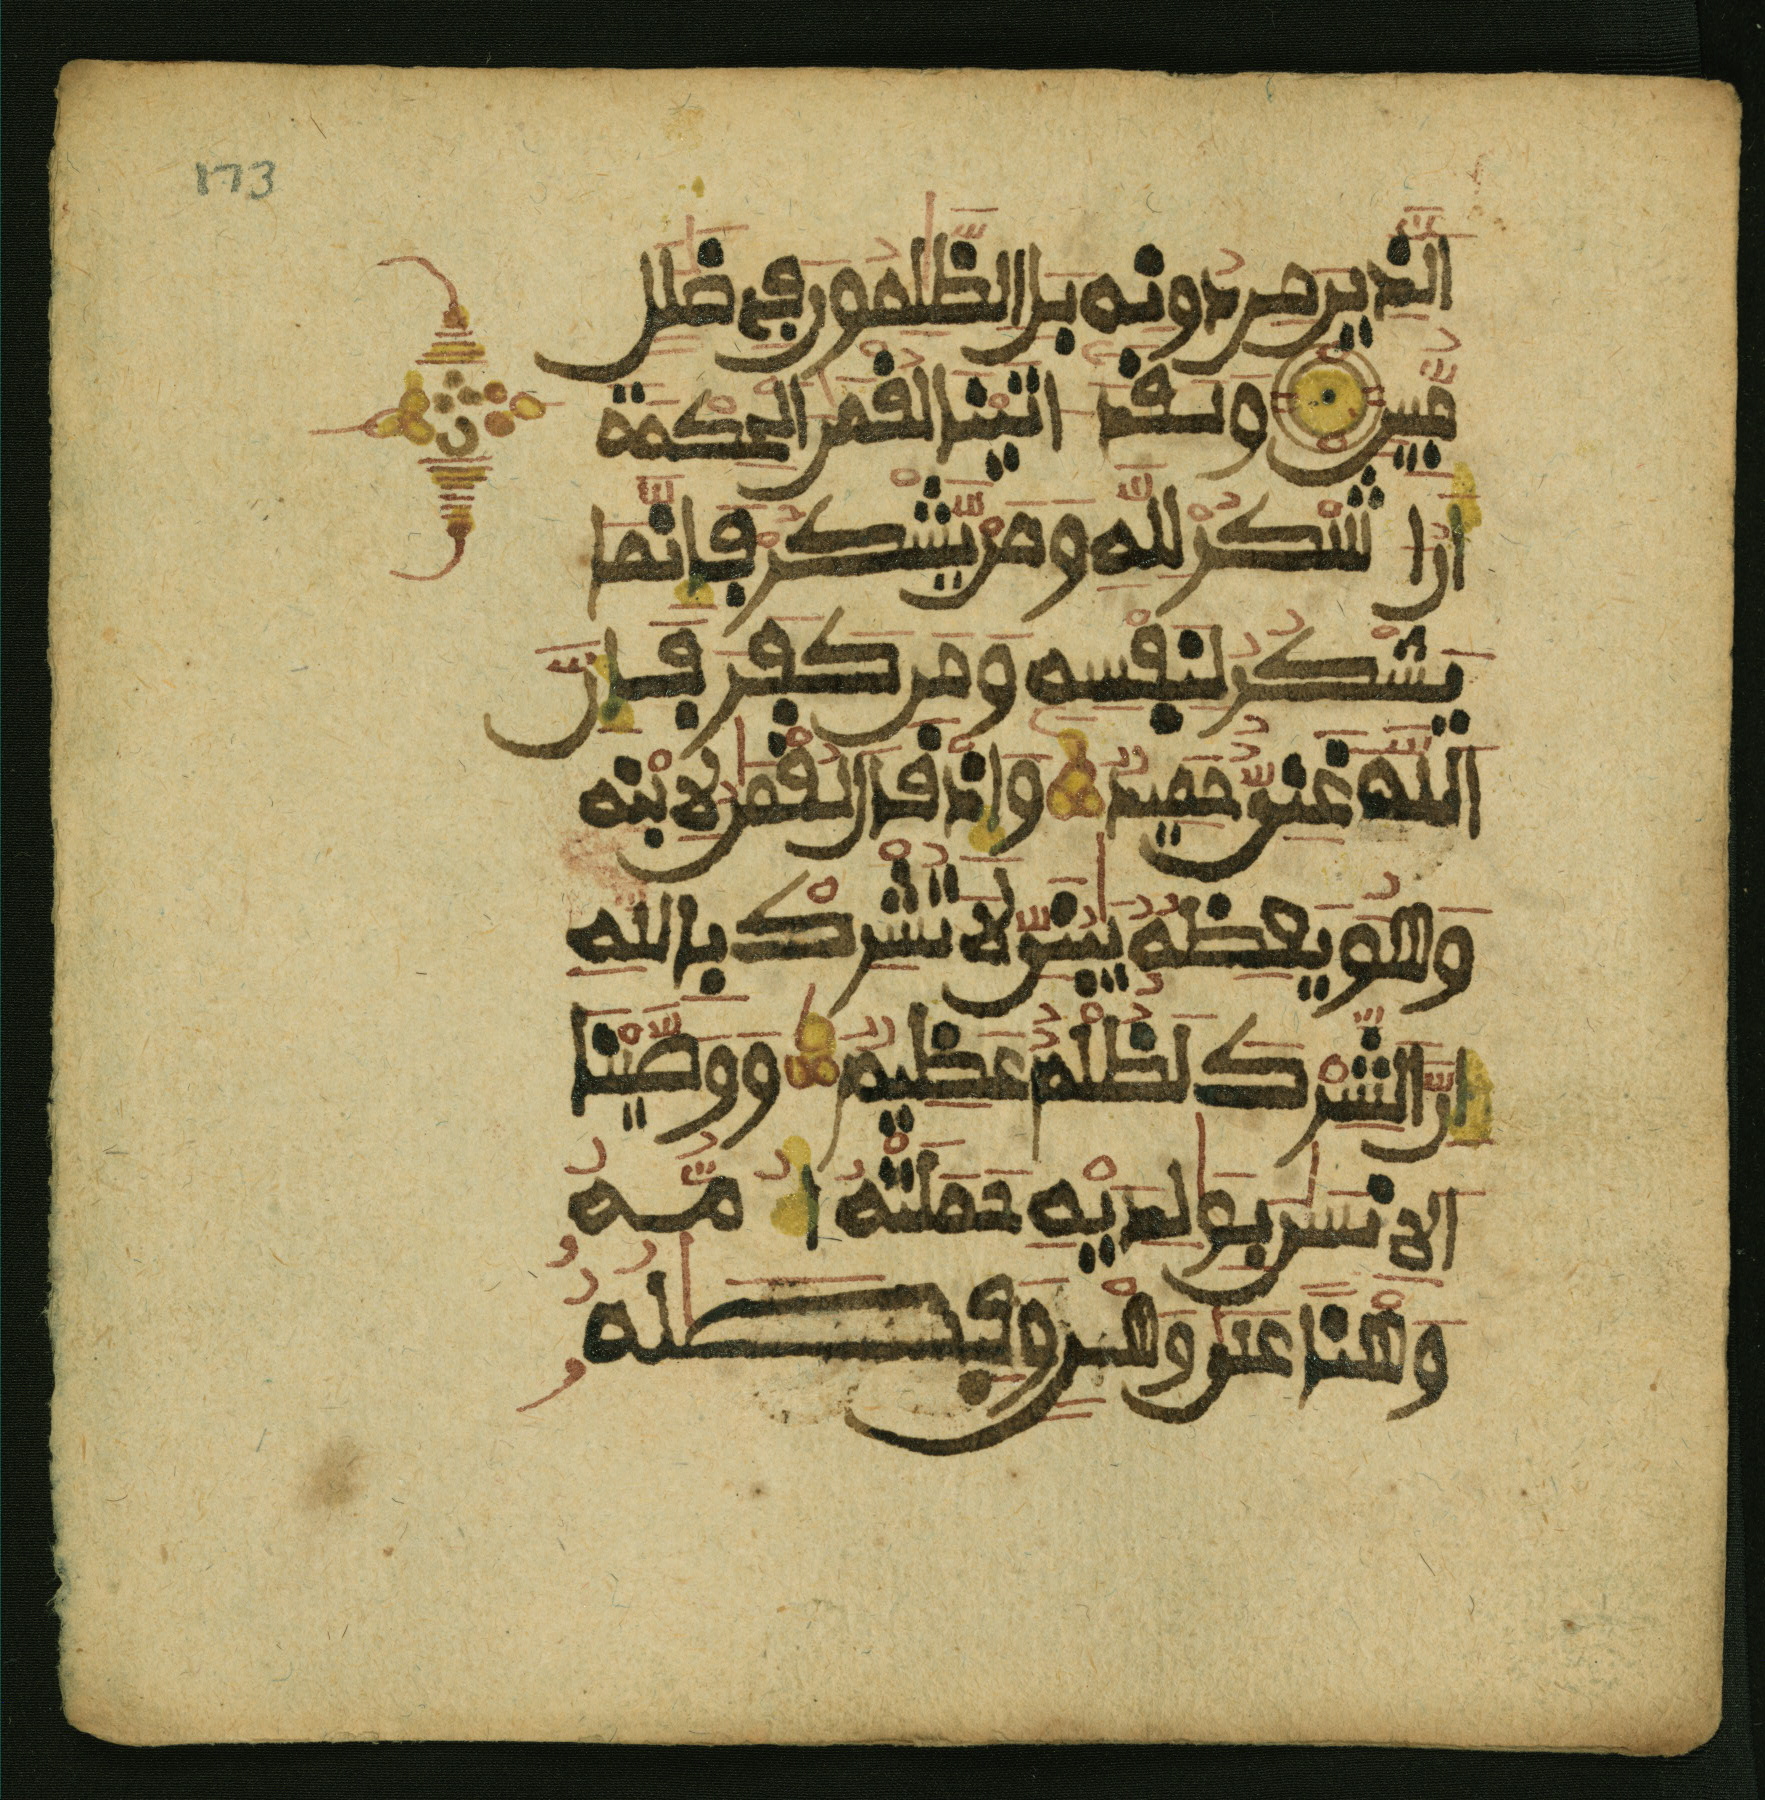 173
الذِينَ مِن دُونِهِ بَلِ الظَّٰلِمُونَ فِي ضَلَٰلٍ
مُّبِينٍ وَلَقَدَ اتَيْنَا لُقْمَٰنَ الْحِكْمَةَ
أَنُ اشْكُرْ لِلهِ وَمَنْ يَّشْكُرْ فَإِنَّمَا
يَشْكُرُ لِنَفْسِهِ وَمَن كَفَرَ فَإِنَّ
اللَّهَ غَنِيٌّ حَمِيدٌ وَإِذْ قَالَ لُقْمَٰنُ لِابْنِهِ
وَهُوَ يَعِظُهُ يَٰبُنَيِّ لَا تُشْرِكْ بِاللَّهِ
إِنَّ الشِّرْكَ لَظُلْمٌ عَظِيمٌ وَوَصَّيْنَا
الِانسَٰنَ بِوَٰلِدَيْهِ حَمَلَتْهُ أُمُّهُ
وَهْنًا عَلَىٰ وَهْنٍ وَفِصَٰلُهُ